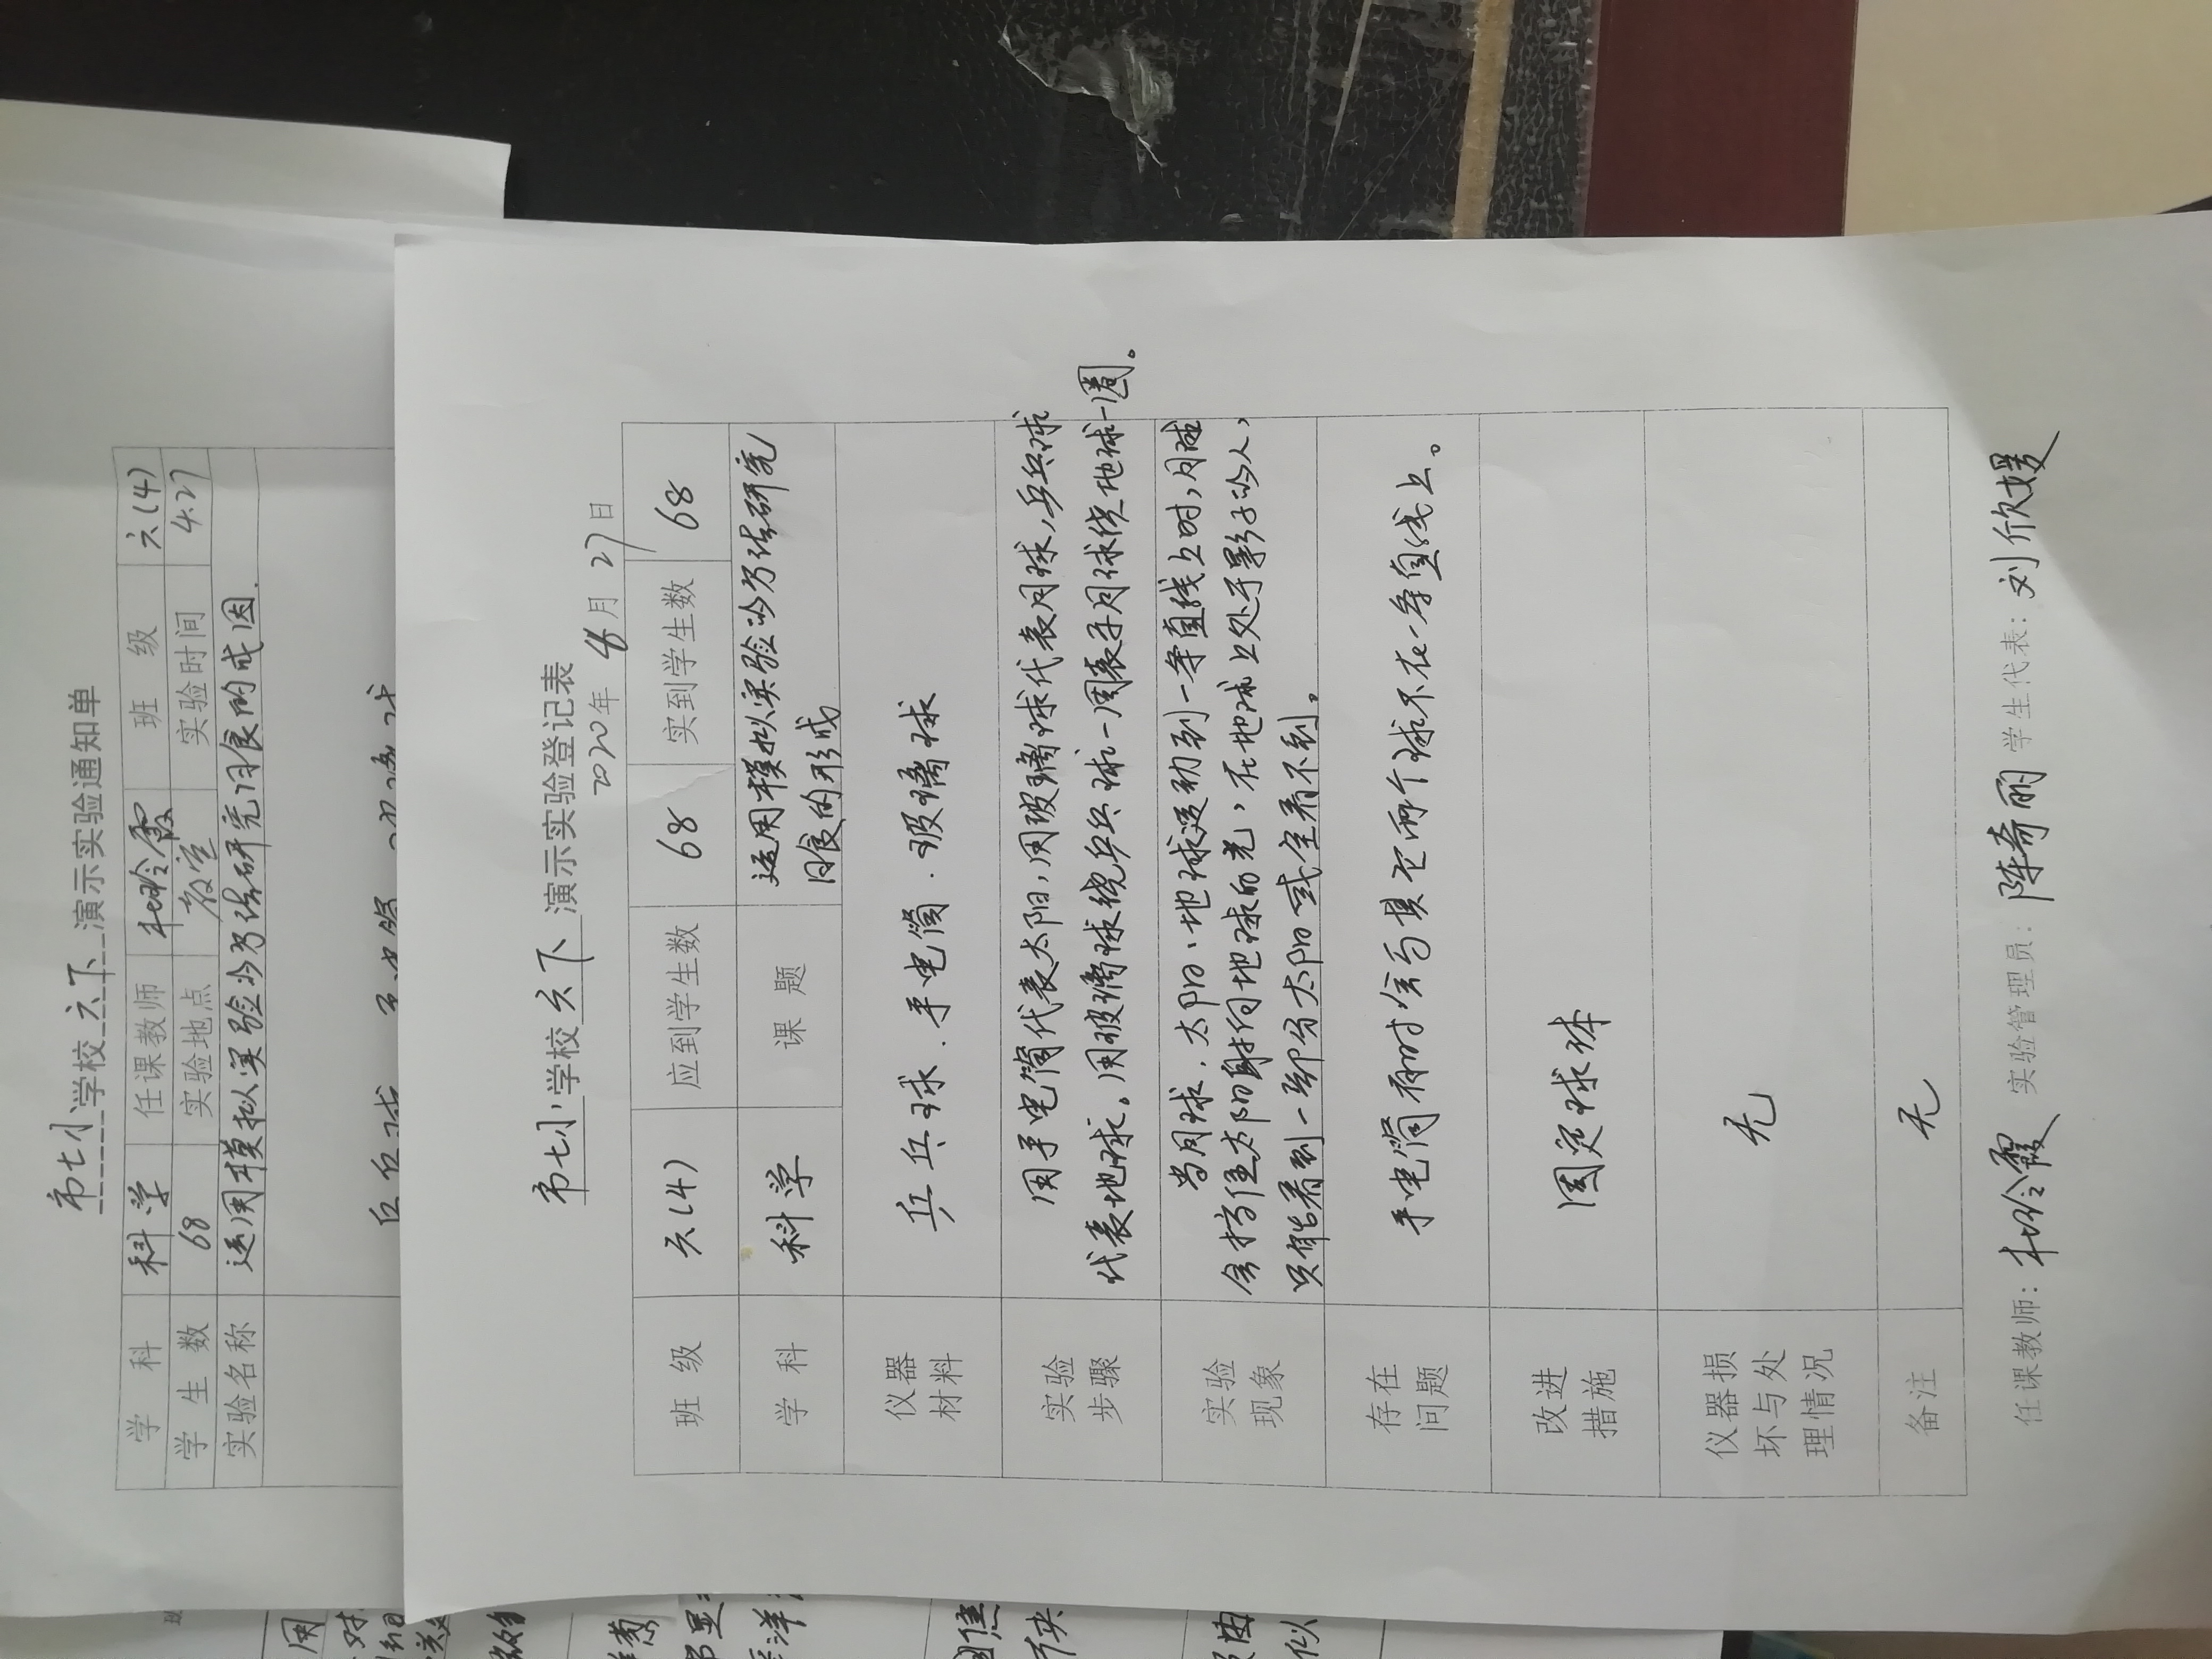 市七小学校六下演示实验通知单
学 科 科学 任课教师 班 级 六(4)
学生数 68 实验地点 教室 实验时间 4.27
实验名称 运用模拟实验的方法研究日食的成因.
市七小学校六下演示实验登记表
2020年4月27日
班 级 六(4) 应到学生数 68 实到学生数 68
学 科 科学 课 题 运用模拟实验的方法研究
日食的形成
仪器
材料
乒乓球.手电筒.玻璃球
实验
步骤
用手电筒代表太阳,用玻璃球代表月球,乒乓球
代表地球。用玻璃球绕乒乓球一周表示月球绕地球一圈。
实验
现象
当月球、太阳、地球运动到一条直线上时,月球
会挡住太阳射向地球的光,在地球上处于影子的人,
只能看到一部分太阳或全看不到。
存在
问题
手电筒有时会与其它两个球不在一条直线上。
改进
措施
固定球体
仪器损
坏与处
理情况
无
备注
无
任课教师: 实验管理员: 陈奇丽 学生代表: 刘欣媛